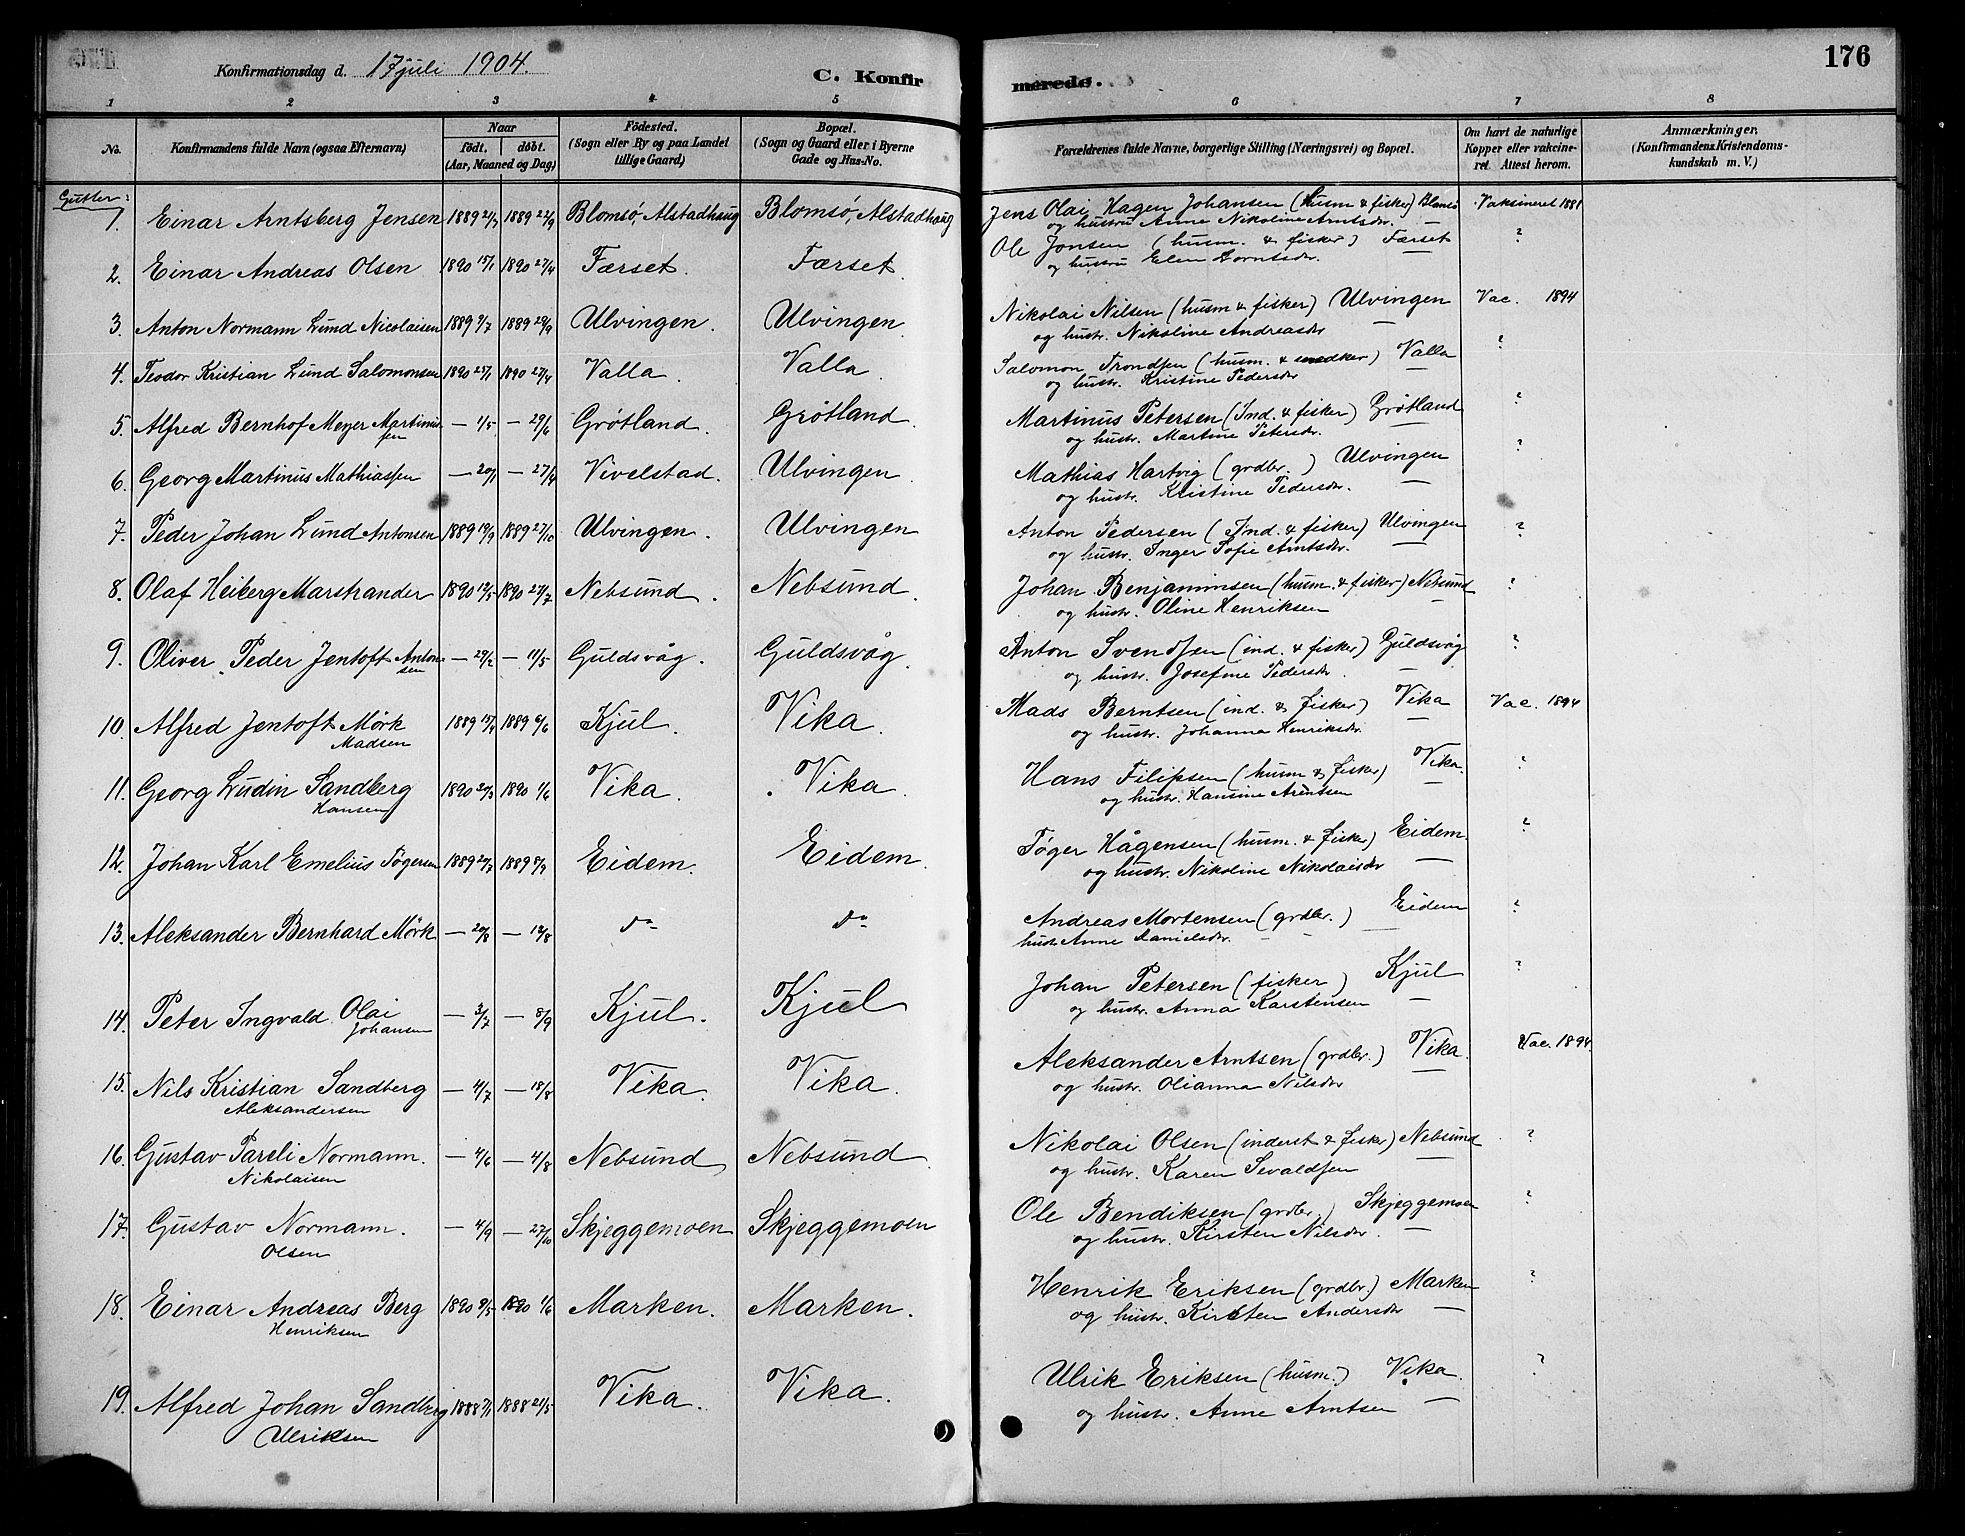 176
Konfirmationsdag d. 17 juli 1904.
C. Konfirmerede.
1 2 3 4 5 6 7 8
No.
Konfirmandens fulde Navn (ogsaa Efternavn)
Naar
födt. döbt.
(Aar, Maaned og Dag)
Födested.
(Sogn eller By og paa Landet
tillige Gaard)
Bopæl.
(Sogn og Gaard eller i Byerne
Gade og Hus-No.
Forældrenes fulde Navne, borgerlige Stilling (Næringsvei) og Bopæl.
Om havt de naturlige
Kopper eller vakcine-
ret. Attest herom.
Anmærkninger.
(Konfirmandens Kristendoms-
kundskab m. V.)
Gutter:
1. Einar Arntsberg Jensen 1889 21/7 1889 22/9 Blomsö, Alstadhaug Blomsö, Alstadhaug Jens Olai Hagen Johansen (husm & fisker) Blomsö Vaksineret 1881
og hustru Anne Nikoline Arntsdr. —
2. Einar Andreas Olsen 1890 15/1 1890 27/4 Færset. Færset. Ole Jonsen (husm. & fisker) Færset ?
og hustru Elen Arntsdr. —
3. Anton Normann Lund Nicolaisen 1889 9/7 1889 29/9 Ulvingen. Ulvingen. Nikolai Nilsen (husm & fisker) Ulvingen Vac. 1894
og hustr. Nikoline Andreasdr —
4. Teodor Kristian Lund Salomonsen 1890 25/1 1890 27/4 Valla. Valla. Salomon Trondsen (husm. & snedker) Valla ?
og hustr. Kristine Pedersdr —
5. Alfred Bernhof Meyer Martinus- — 1/5 — 29/6 Grøtland. Grøtland. Martinus Petersen (Ind. & fisker) Grøtland ?
sen og hustr. Martine Petersdr. —
6. Georg Martinus Mathiassen — 20/1 — 27/4 Vivelstad. Ulvingen. Mathias Hartvig (grdbr.) Ulvingen ?
og hustr. Kristine Pedersdr. —
7. Peder Johan Lund Antonsen 1889 19/9 1889 27/10 Ulvingen. Ulvingen Anton Pedersen (Ind. & fisker) Ulvingen ?
og hustr. Inger Sofie Arntsdr. —
8. Olaf Heiberg Marstrander 1890 12/5 1890 27/7 Nebsund. Nebsund. Johan Benjaminsen (husm. & fisker) Nebsund ?
og hustr. Oline Henriksen —
9. Oliver Peder Jentoft Anton- — 24/2 — 11/5 Guldsvåg. Guldsvåg. Anton Svendsen (ind. & fisker) Guldsvåg ?
sen og hustr. Josefine Pedersdr. —
10. Alfred Jentoft Mörk 1889 15/4 1889 6/6 Kjul. Vika. Mads Berntsen (ind. & fisker) Vika Vac. 1894
Madsen og hustr. Johanna Henriksdr. —
11. Georg Ludin Sandberg 1890 20/3 1890 1/6 Vika. Vika. Hans Filipsen (husm & fisker) Vika. ?
Hansen og hustr. Hansine Arentsen —
12. Johan Karl Emelius Tøgersen 1889 20/7 1889 8/9 Eidem. Eidem. Tøger Hågensen (husm. & fisker) Eidem. ?
og hustr. Nikoline Nikolaisdr —
13. Aleksander Bernhard Mörk — 20/8 — 18/8 do do Andreas Mortensen (grdbr.) Eidem ?
hustr Anne Danielsdr. —
14. Peter Ingvald Olai — 3/7 — 8/9 Kjul. Kjul Johan Petersen (fisker) Kjul ?
Johansen og hustr. Anna Karstensen —
15. Nils Kristian Sandberg — 4/7 — 18/8 Vika. Vika. Aleksander Arntsen (grdbr.) Vika. Vac. 1894.
Aleksandersen og hustr. Olianna Nilsdr —
16. Gustav Pareli Normann. — 4/6 — 4/8 Nebsund Nebsund. Nikolai Olsen (inderst & fisker) Nebsund ?
Nikolaisen og hustr. Karen Sevaldsen —
17. Gustav Normann. — 4/9 — 27/10 Skjeggemoen Skjeggemoen Ole Bendiksen (grdbr.) Skjeggemoen ?
Olsen og hustr. Kirsten Nilsdr. —
18. Einar Andreas Berg 1890 9/5 1890 1/6 Marken. Marken. Henrik Eriksen (grdbr.) Marken ?
Henriksen og hustr. Kirsten Andersdr —
19. Alfred Johan Sandberg 1888 7/1 1888 21/5 Vika. Vika. Ulrik Eriksen (husm.) Vika. ?
Ulriksen og hustr. Anne Arntsen —